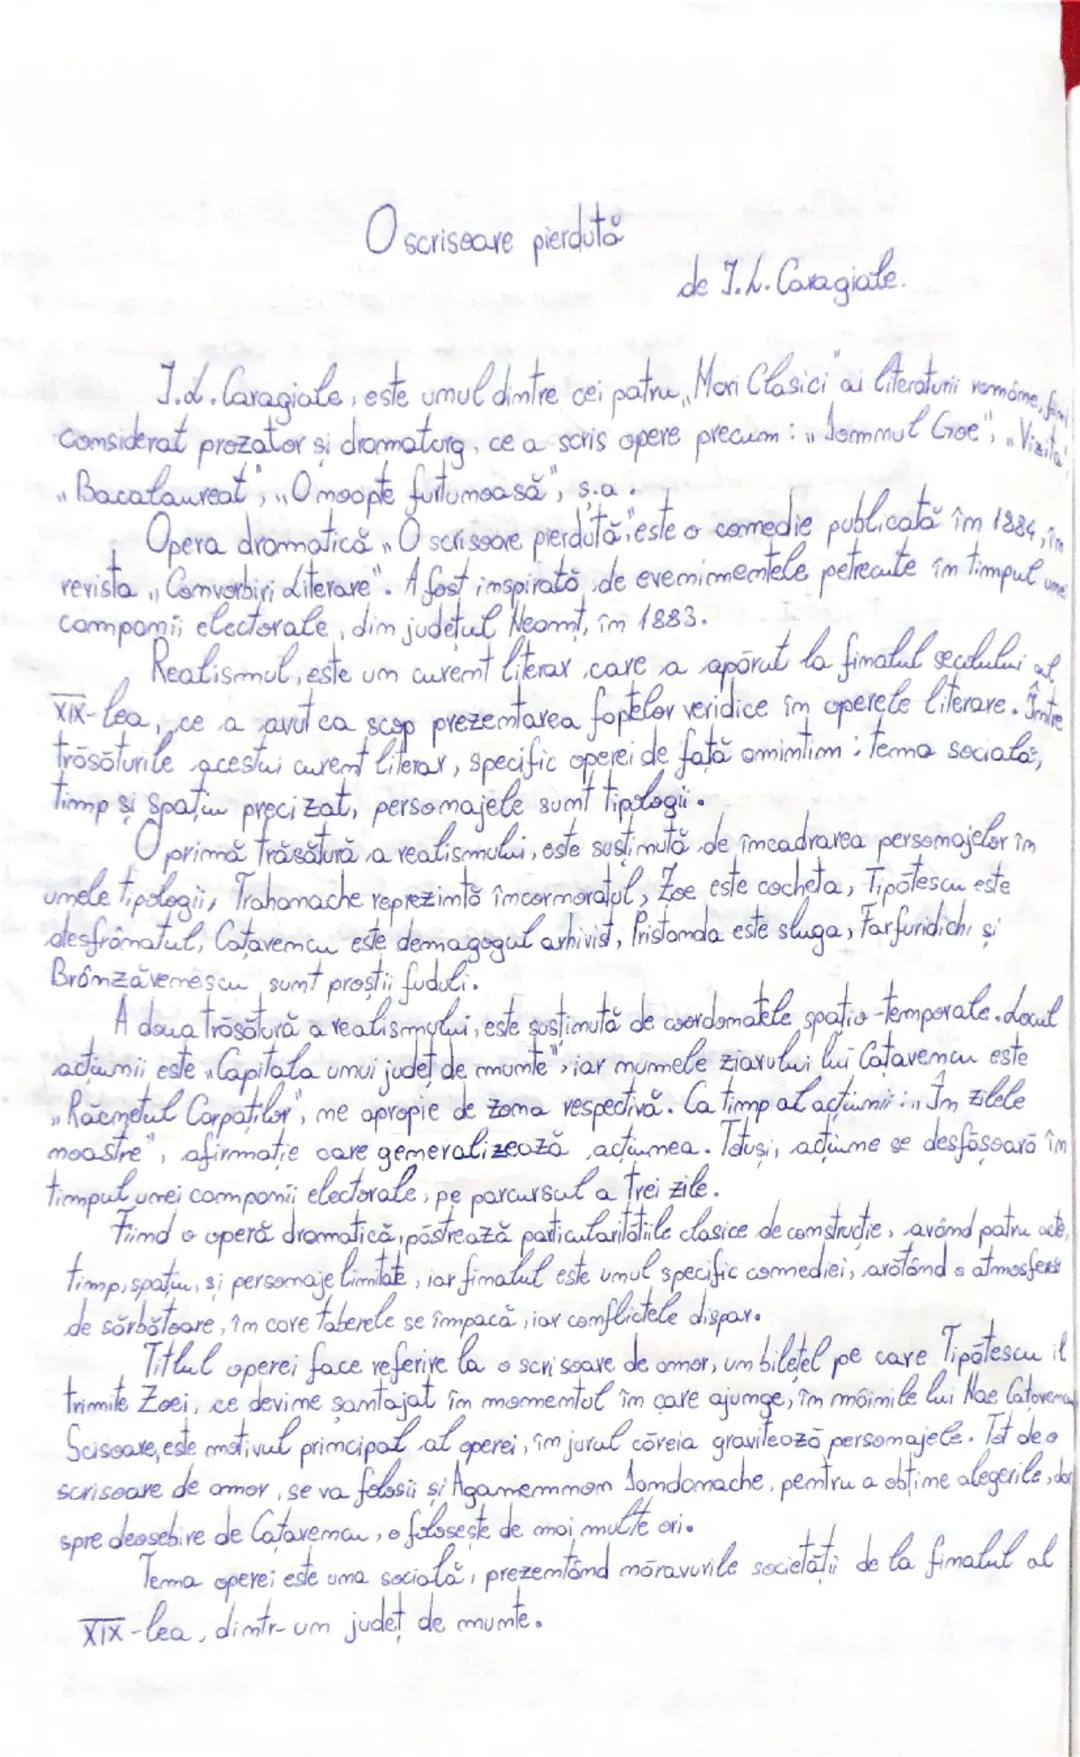 O scrisoare pierdută
de I.L. Caragiale.
I.L. Caragiale, este unul dintre cei patru „Mari Clasici" ai literaturii române, fiind
considerat prozator si dramaturg, ce a scris opere precum: „Domnul Goe", „Vizita",
„Bacalaureat", „O noapte furtunoasă", ș.a.
Opera dramatică „O scrisoare pierdută", este o comedie publicată în 1884, în
revista „Convorbiri Literare". A fost inspirată de evenimentele petrecute în timpul unei
campanii electorale, din județul Neamț, în 1883.
Realismul, este un curent literar care a apărut la finalul secolului al
XIX-lea, ce a avut ca scop prezentarea faptelor veridice în operele literare. Între
trăsăturile acestui curent literar, specific operei de față amintim: tema socială,
timp și spațiu precizat, personajele sunt tipologii.
O primă trăsătură a realismului, este susținută de încadrarea personajelor în
unele tipologii, Trahanache reprezintă încornoratul, Zoe este cocheta, Tipătescu este
desfrânatul, Cațavencu este demagogul arhivist, Pristanda este sluga, Farfuridichi și
Brânzăvenescu sunt proștii fuduli.
A doua trăsătură a realismului, este susținută de coordonatele spațio-temporale. Locul
acțiunii este „Capitala unui județ de munte", iar numele ziarului lui Cațavencu este
„Răcnetul Carpaților", ne apropie de zona respectivă. Ca timp al acțiunii: „În zilele
noastre", afirmație care generalizează acțiunea. Totuși, acțiune se desfășoară în
timpul unei campanii electorale, pe parcursul a trei zile.
Fiind o operă dramatică, păstrează particularitățiile clasice de construcție, având patru acte,
timp, spațiu, și personaje limitate, iar finalul este unul specific comediei, arătând o atmosferă
de sărbătoare, în care taberele se împacă, iar conflictele dispar.
Titlul operei face referire la o scrisoare de amor, un bilețel pe care Tipătescu il
trimite Zoei, ce devine șantajat în momentul în care ajunge, în mâinile lui Nae Cațavencu
Scisoare, este motivul principal al operei, în jurul căreia gravitează personajele. Tot de o
scrisoare de amor, se va folosii și Agamemnon Dandanache, pentru a obține alegerile, dar
spre deosebire de Cațavencu, o folosește de mai multe ori.
Tema operei este una socială, prezentând moravurile societății de la finalul al
XIX-lea, dintr-un județ de munte.